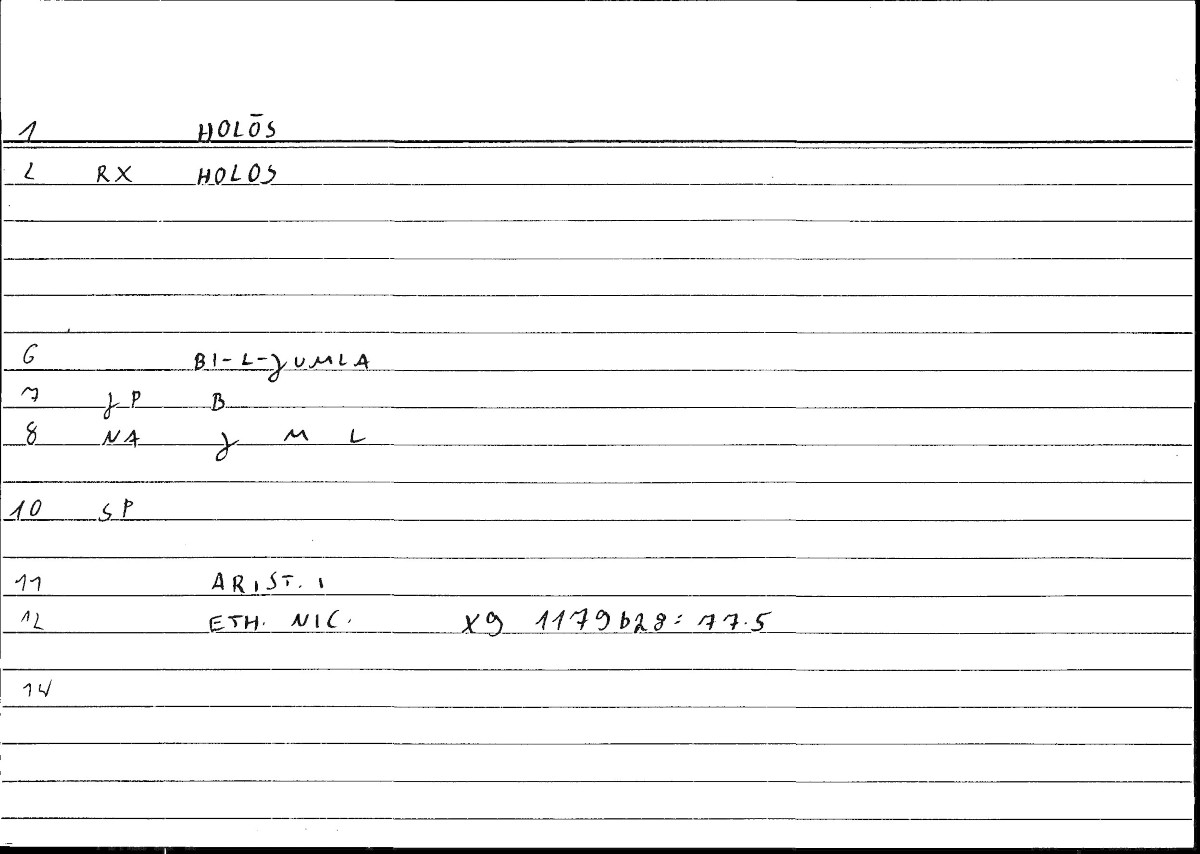 1 HOLŌS
2 RX HOLOS
6 BI-L-JUMLA
7 JP B
8 NA J M L
10 SP
11 ARIST. 1
12 ETH. NIC. X9 1179b28: 77.5
14